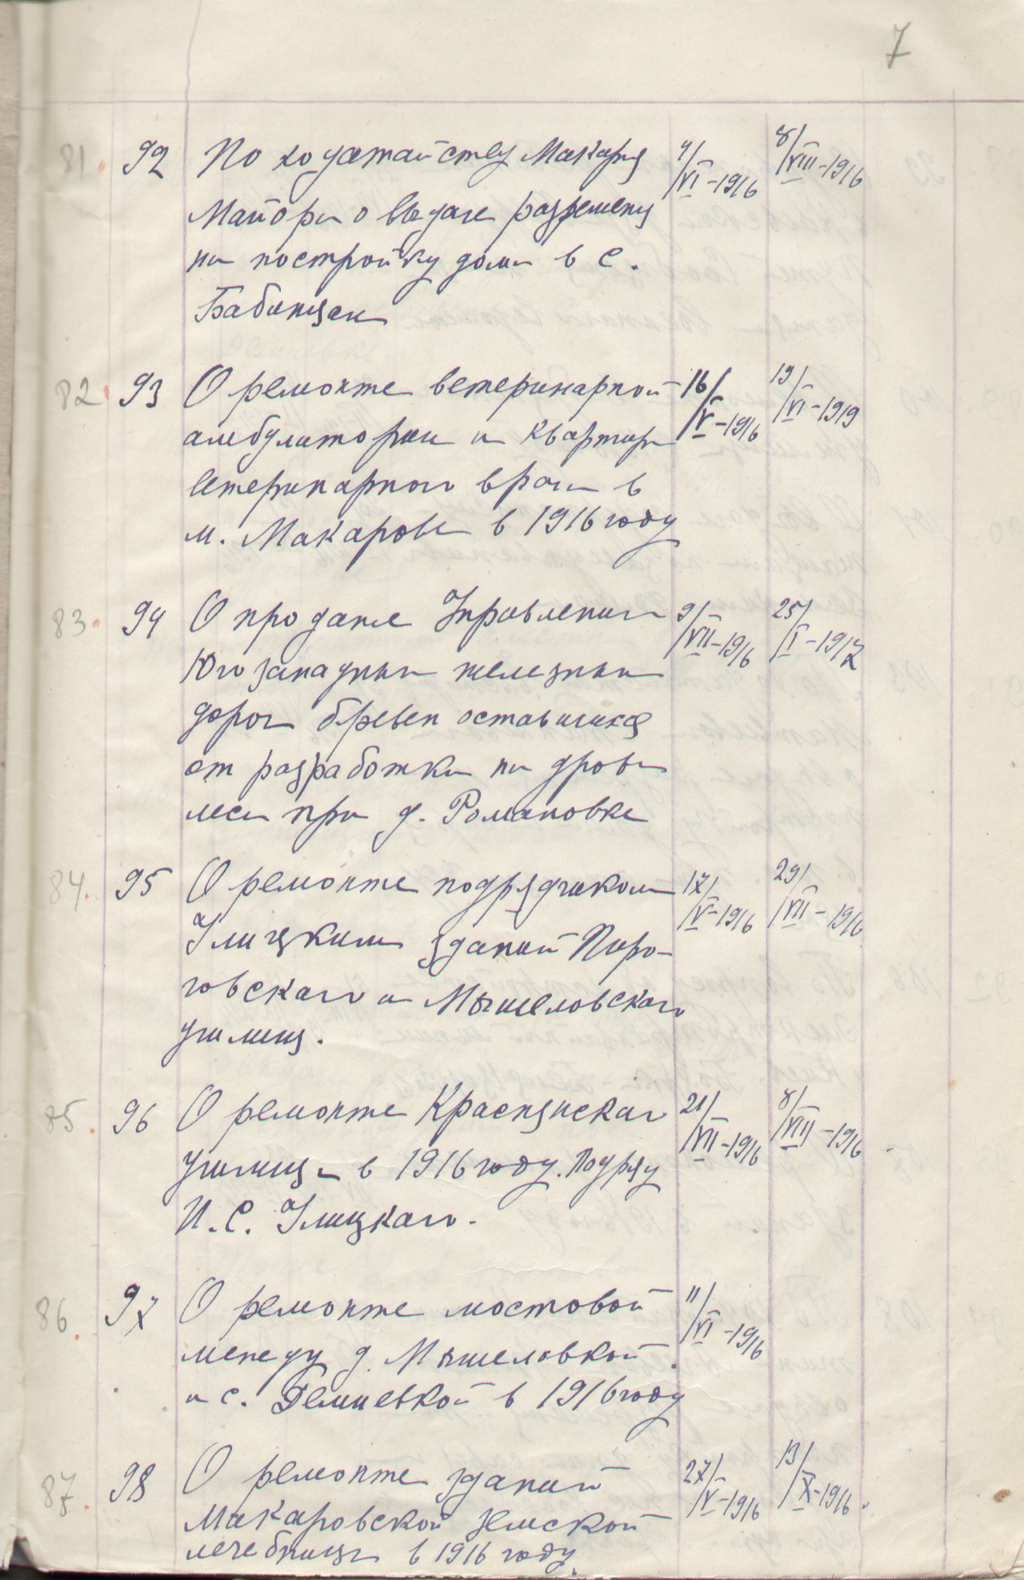 7
81. 92 По ходатайству Макара 4/VI-1916 8/VIII-1916
Майора о выдаче разрешения
на постройку дома в с.
Бабинцах
82. 93 О ремонте ветеринарной 16/V-1916 19/VI-1919
амбулатории и квартиры
ветеринарного врача в
м. Макарове в 1916 году
83. 94 О продаже Управлению 9/VII-1916 25/I-1917
Югозападных железных
дорог бревен оставшихся
от разработки на дрова
леса при д. Романовке
84. 95 О ремонте подрядчиком 17/V-1916 29/VII-1916
Улицким зданий Пиро-
говского и Мышеловского
училищ.
85. 96 О ремонте 21/VII-1916 8/VIII-1916
училища в 1916 году. Подряд
И. С. Улицкого.
86. 97 О ремонте мостовой 11/VI-1916
между д. Мышеловкой
и с. Демиевкой в 1916 году
87. 98 О ремонте зданий 27/V-1916 13/X-1916.
Макаровской земской
лечебницы в 1916 году.